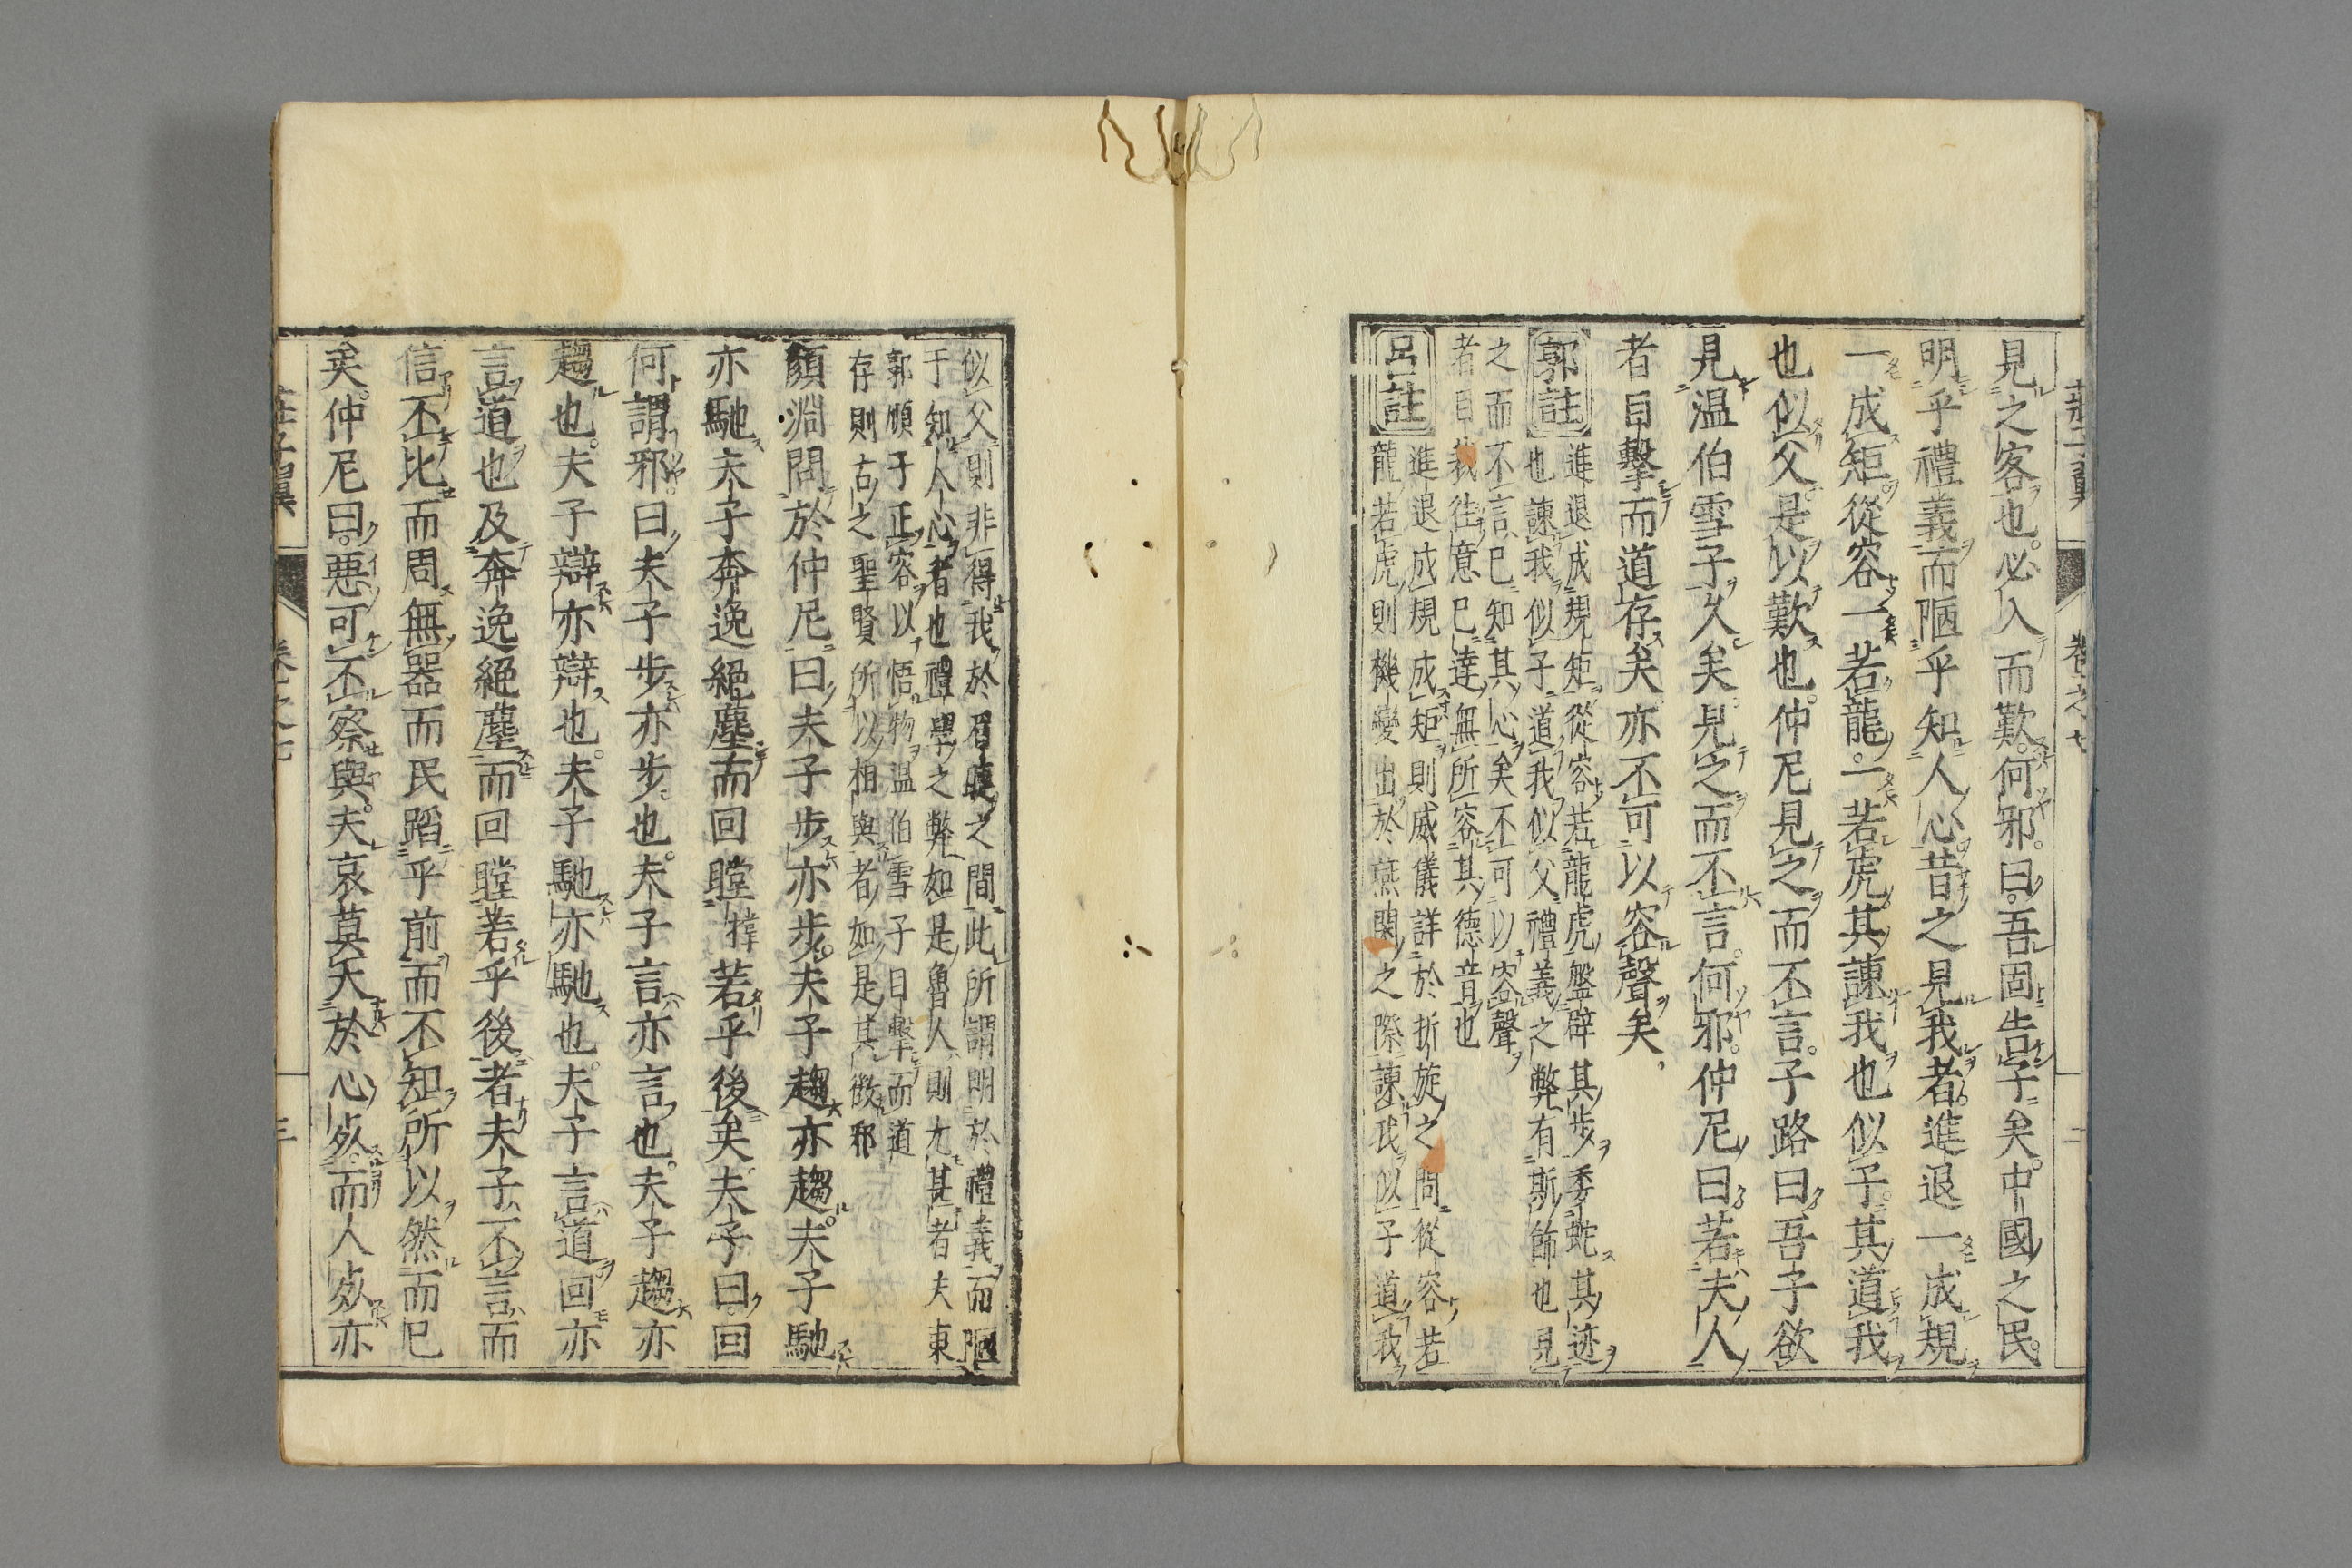 莊子翼 卷之七 二
見之客也必入而歎何邪曰吾固告子矣中國之民
明乎禮義而陋乎知人心昔之見我者進退一成規
一成矩從容一若龍一若虎其諫我也似子其道我
也似父是以歎也仲尼見之而不言子路曰吾子欲
見温伯雪子久矣見之而不言何邪仲尼曰若夫人
者目擊而道存矣亦不可以容聲矣
郭註
進退成規矩從容若龍虎盤辟其步委蛇其迹
也諫我似子道我似父禮義之弊有斯飾也見
之而不言已知其心矣不可以容聲
者目裁往意已達無所容其德音也
呂註
進退成規成矩則威儀詳於折旋之間從容若
龍若虎則機變出於燕閑之際諫我似子道我
似父則非得我於眉睫之間此所謂明於禮義而陋
于知人心者也禮學之弊如是魯人則尤甚者夫東
郭順子正容以悟物温伯雪子目擊而道
存則古之聖賢所以相與者如是其微邪
顏淵問於仲尼曰夫子步亦步夫子趨亦趨夫子馳
亦馳夫子奔逸絕塵而回瞠若乎後矣夫子曰回
何謂邪曰夫子步亦步也夫子言亦言也夫子趨亦
趨也夫子辯亦辯也夫子馳亦馳也夫子言道回亦
言道也及奔逸絕塵而回瞠若乎後者夫子不言而
信不比而周無器而民蹈乎前而不知所以然而已
矣仲尼曰惡可不察與夫哀莫大於心死而人死亦
莊子翼 卷之七 三